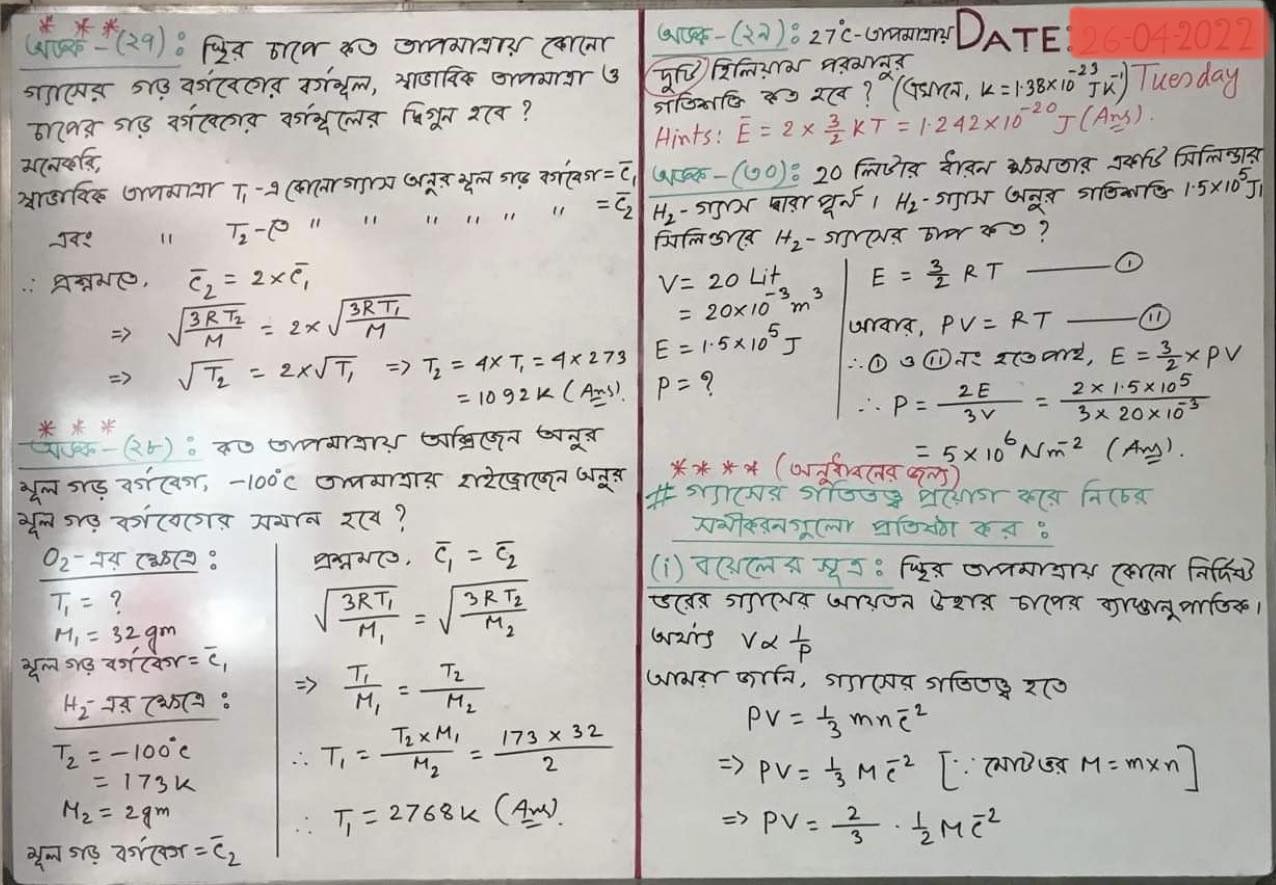 * * *
অংক - (২৭) : স্থির চাপে কত তাপমাত্রায় কোনো
গ্যাসের গড় বর্গবেগের বর্গমূল, স্বাভাবিক তাপমাত্রা ও
চাপের গড় বর্গবেগের বর্গমূলের দ্বিগুন হবে ?
মনেকরি,
স্বাভাবিক তাপমাত্রা T₁-এ কোনো গ্যাস অনুর মূল গড় বর্গবেগ = c̄₁
এবং " T₂-তে " " " " " " = c̄₂
∴ প্রশ্নমতে, c̄₂ = 2 × c̄₁
=> √(3RT₂/M) = 2 × √(3RT₁/M)
=> √T₂ = 2×√T₁ => T₂ = 4×T₁ = 4×273
= 1092 K (Ans).
* * *
অংক - (২৮) : কত তাপমাত্রায় অক্সিজেন অনুর
মূল গড় বর্গবেগ, -100°C তাপমাত্রার হাইড্রোজেন অনুর
মূল গড় বর্গবেগের সমান হবে ?
O₂-এর ক্ষেত্রে :
T₁ = ?
M₁ = 32 gm
মূল গড় বর্গবেগ = c̄₁
H₂-এর ক্ষেত্রে :
T₂ = -100°C
= 173 K
M₂ = 2 gm
মূল গড় বর্গবেগ = c̄₂
প্রশ্নমতে, c̄₁ = c̄₂
√(3RT₁/M₁) = √(3RT₂/M₂)
=> T₁/M₁ = T₂/M₂
∴ T₁ = (T₂×M₁)/M₂ = (173 × 32)/2
∴ T₁ = 2768 K (Ans).
অংক - (২৯) : 27°C - তাপমাত্রায় DATE: 26-04-2022
দুটি হিলিয়াম পরমানুর
গতিশক্তি কত হবে ? (এখানে, K = 1.38×10⁻²³ JK⁻¹) Tuesday
Hints: Ē = 2 × 3/2 KT = 1.242×10⁻²⁰ J (Ans).
অংক - (৩০) : 20 লিটার ধারন ক্ষমতার একটি সিলিন্ডার
H₂-গ্যাস দ্বারা পূর্ন। H₂-গ্যাস অনুর গতিশক্তি 1.5×10⁵ J,
সিলিন্ডারে H₂-গ্যাসের চাপ কত ?
V = 20 Lit
= 20×10⁻³ m³
E = 1.5×10⁵ J
P = ?
E = 3/2 RT ——— (I)
আবার, PV = RT ——— (II)
∴ (I) ও (II) নং হতে পাই, E = 3/2 × PV
∴ P = 2E/3V = (2 × 1.5×10⁵)/(3 × 20×10⁻³)
= 5×10⁶ Nm⁻² (Ans).
* * * * (অনুধাবনের জন্য)
# গ্যাসের গতিতত্ত্ব প্রয়োগ করে নিচের
সমীকরনগুলো প্রতিষ্ঠা কর :
(i) বয়েলের সূত্র : স্থির তাপমাত্রায় কোনো নির্দিষ্ট
ভরের গ্যাসের আয়তন উহার চাপের ব্যাস্তানুপাতিক।
অর্থাৎ V ∝ 1/P
আমরা জানি, গ্যাসের গতিতত্ত্ব হতে
PV = 1/3 mnc̄²
=> PV = 1/3 Mc̄² [∵ মোট ভর M = m×n]
=> PV = 2/3 · 1/2 Mc̄²